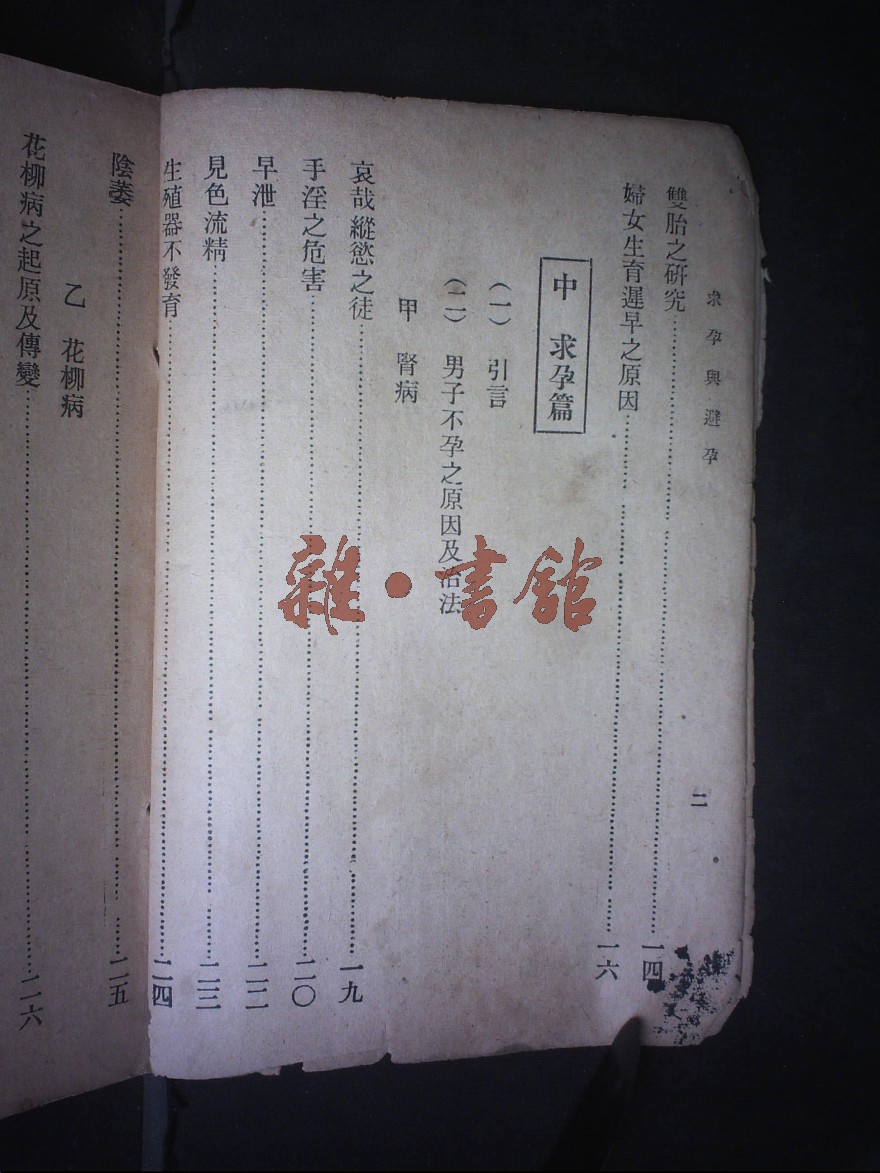 求孕與避孕
二
雙胎之研究……一四
婦女生育遲早之原因……一六
中 求孕篇
(一) 引言
(二) 男子不孕之原因及治法
甲 腎病
哀哉縱慾之徒……一九
手淫之危害……二〇
早泄……二二
見色流精……二三
生殖器不發育……二四
陰萎……二五
乙 花柳病
花柳病之起原及傳變……二六
雜·書館